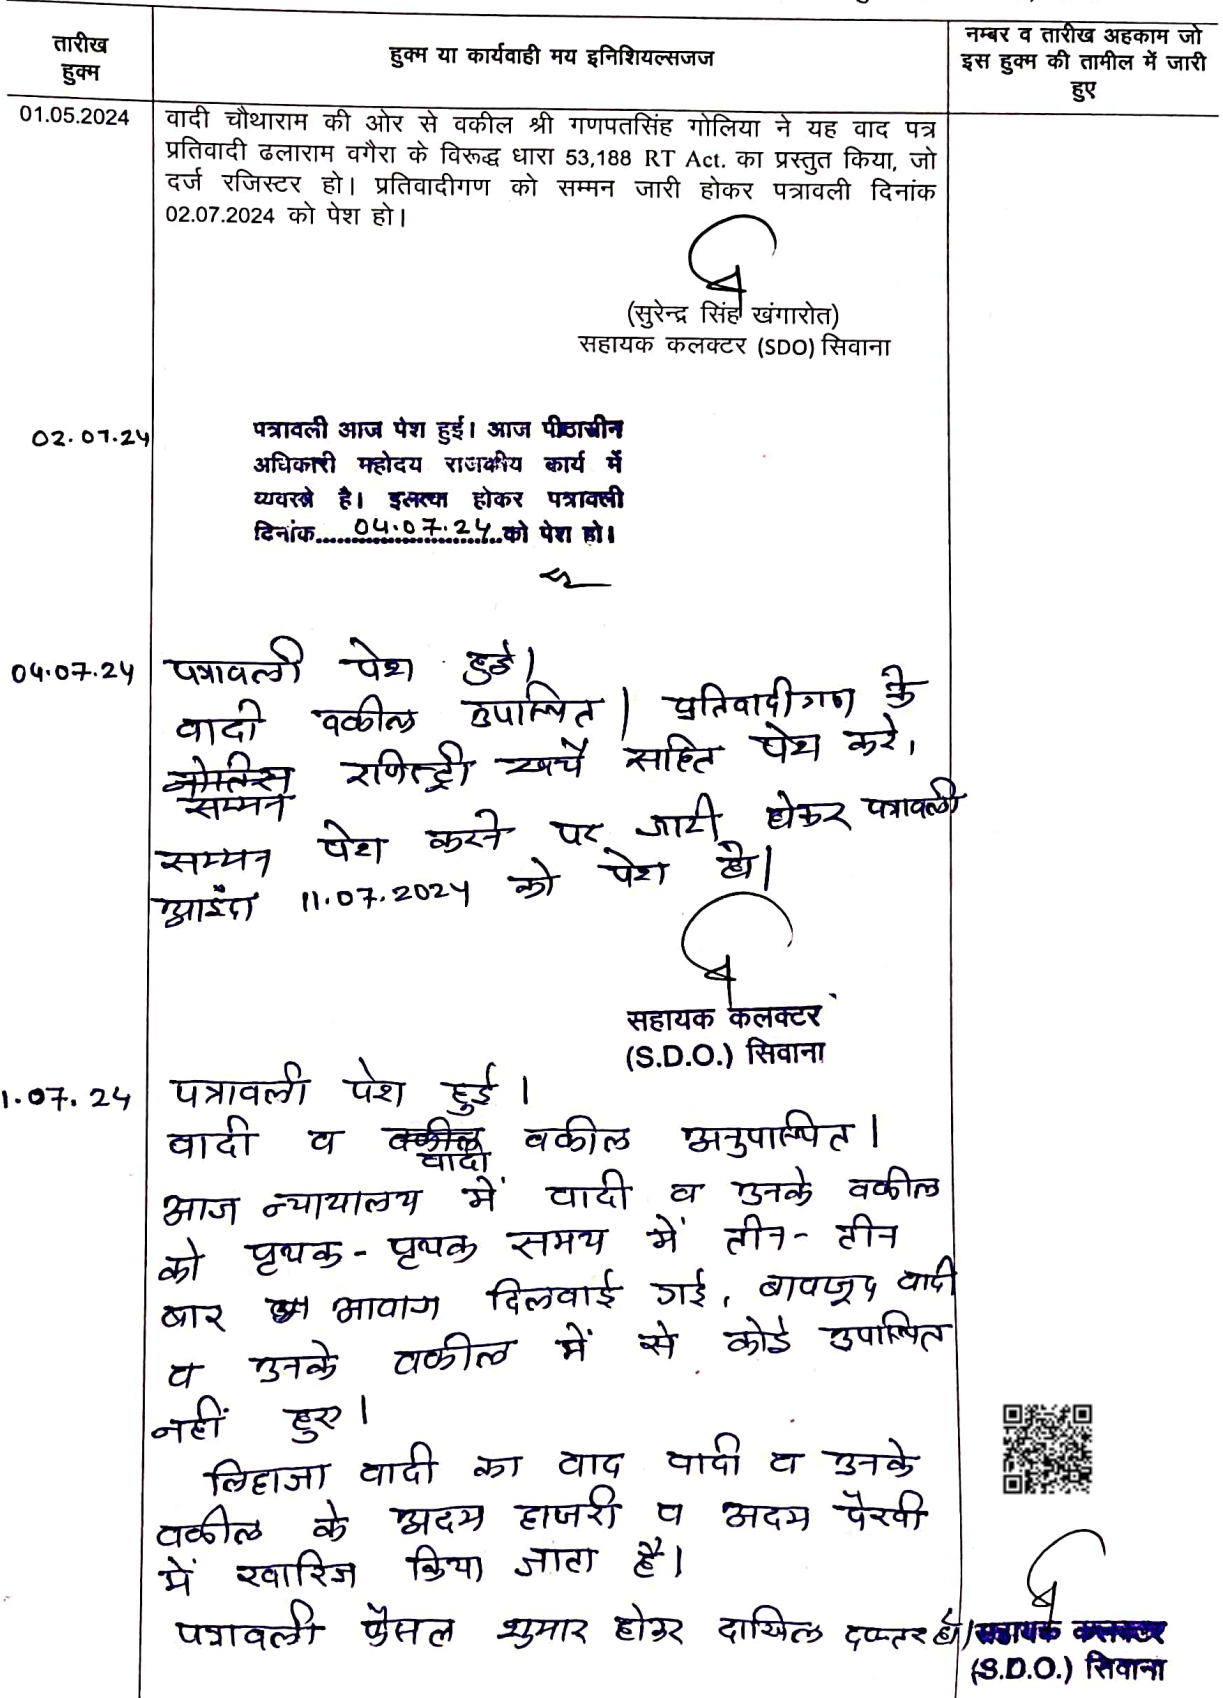 तारीख
हुक्म
हुक्म या कार्यवाही मय इनिशियल्सजज
नम्बर व तारीख अहकाम जो
इस हुक्म की तामील में जारी
हुए
01.05.2024
वादी चौथाराम की ओर से वकील श्री गणपतसिंह गोलिया ने यह वाद पत्र
प्रतिवादी ढलाराम वगैरा के विरूद्ध धारा 53,188 RT Act. का प्रस्तुत किया, जो
दर्ज रजिस्टर हो। प्रतिवादीगण को सम्मन जारी होकर पत्रावली दिनांक
02.07.2024 को पेश हो।
(सुरेन्द्र सिंह खंगारोत)
सहायक कलक्टर (SDO) सिवाना
02.07.24
पत्रावली आज पेश हुई। आज पीठासीन
अधिकारी महोदय राजकीय कार्य में
व्यवस्त है। इलत्वा होकर पत्रावली
दिनांक 04.07.24 को पेश हो।
04.07.24
पत्रावली पेश हुई।
वादी वकील उपस्थित। प्रतिवादीगण के
रजिस्ट्री खर्चे सहित पेश करे,
सम्मन
सम्मन पेश करने पर जारी होकर पत्रावली
आईंदा 11.07.2024 को पेश हो।
सहायक कलक्टर
(S.D.O.) सिवाना
1.07.24
पत्रावली पेश हुई।
वादी व वकील वकील अनुपस्थित।
वादी
आज न्यायालय में वादी व उनके वकील
को पृथक-पृथक समय में तीन-तीन
बार आवाज दिलवाई गई, बावजूद वादी
व उनके वकील में से कोई उपस्थित
नहीं हुए।
लिहाजा वादी का वाद वादी व उनके
वकील के अदम हाजरी व अदम पैरवी
में खारिज किया जाता है।
पत्रावली फैसल शुमार होकर दाखिल दफ्तर हो।
सहायक कलक्टर
(S.D.O.) सिवाना